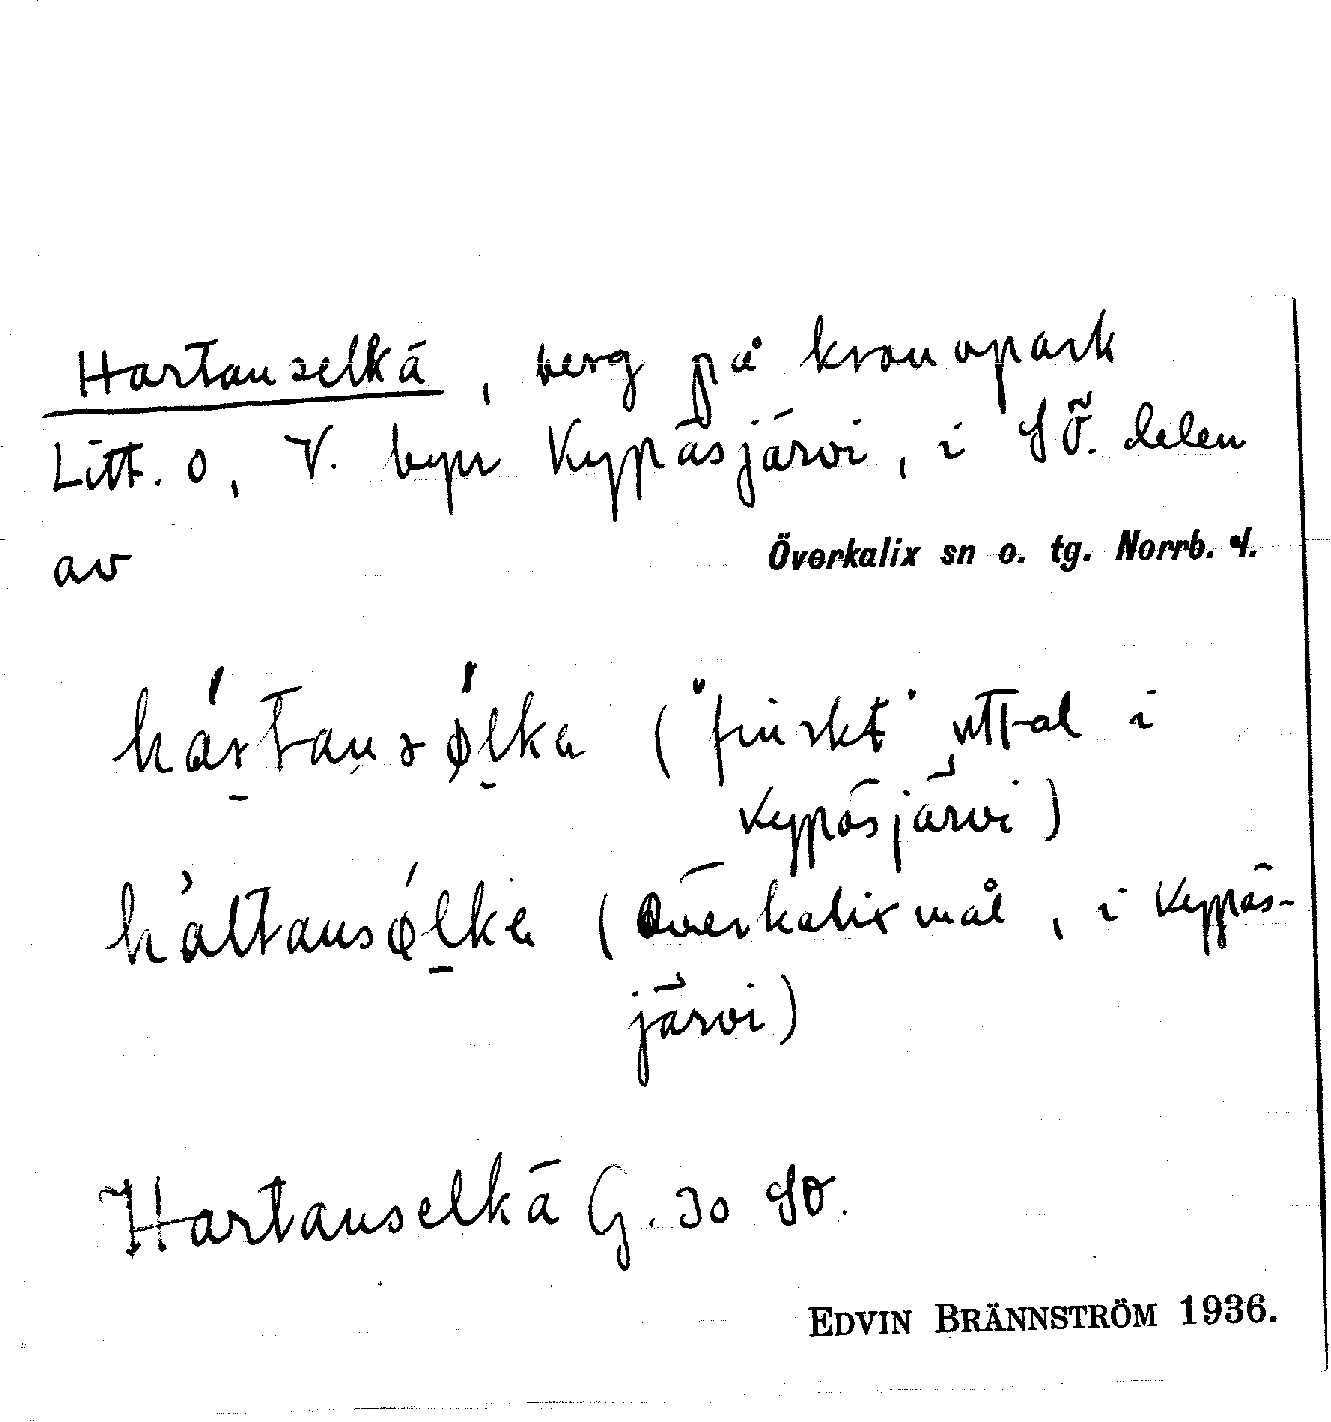 Hartauselkä, berg på kronopark
Litt. O, V. byn Kypäsjärvi, i SÖ. delen
av Överkalix sn o. tg. Norrb. l.
hártausǿlka ("finskt" uttal i
Kypäsjärvi)
hàltausǿlka (Överkalixmål, i Kypäs-
järvi)
Hartauselkä G. 30 SO.
EDVIN BRÄNNSTRÖM 1936.